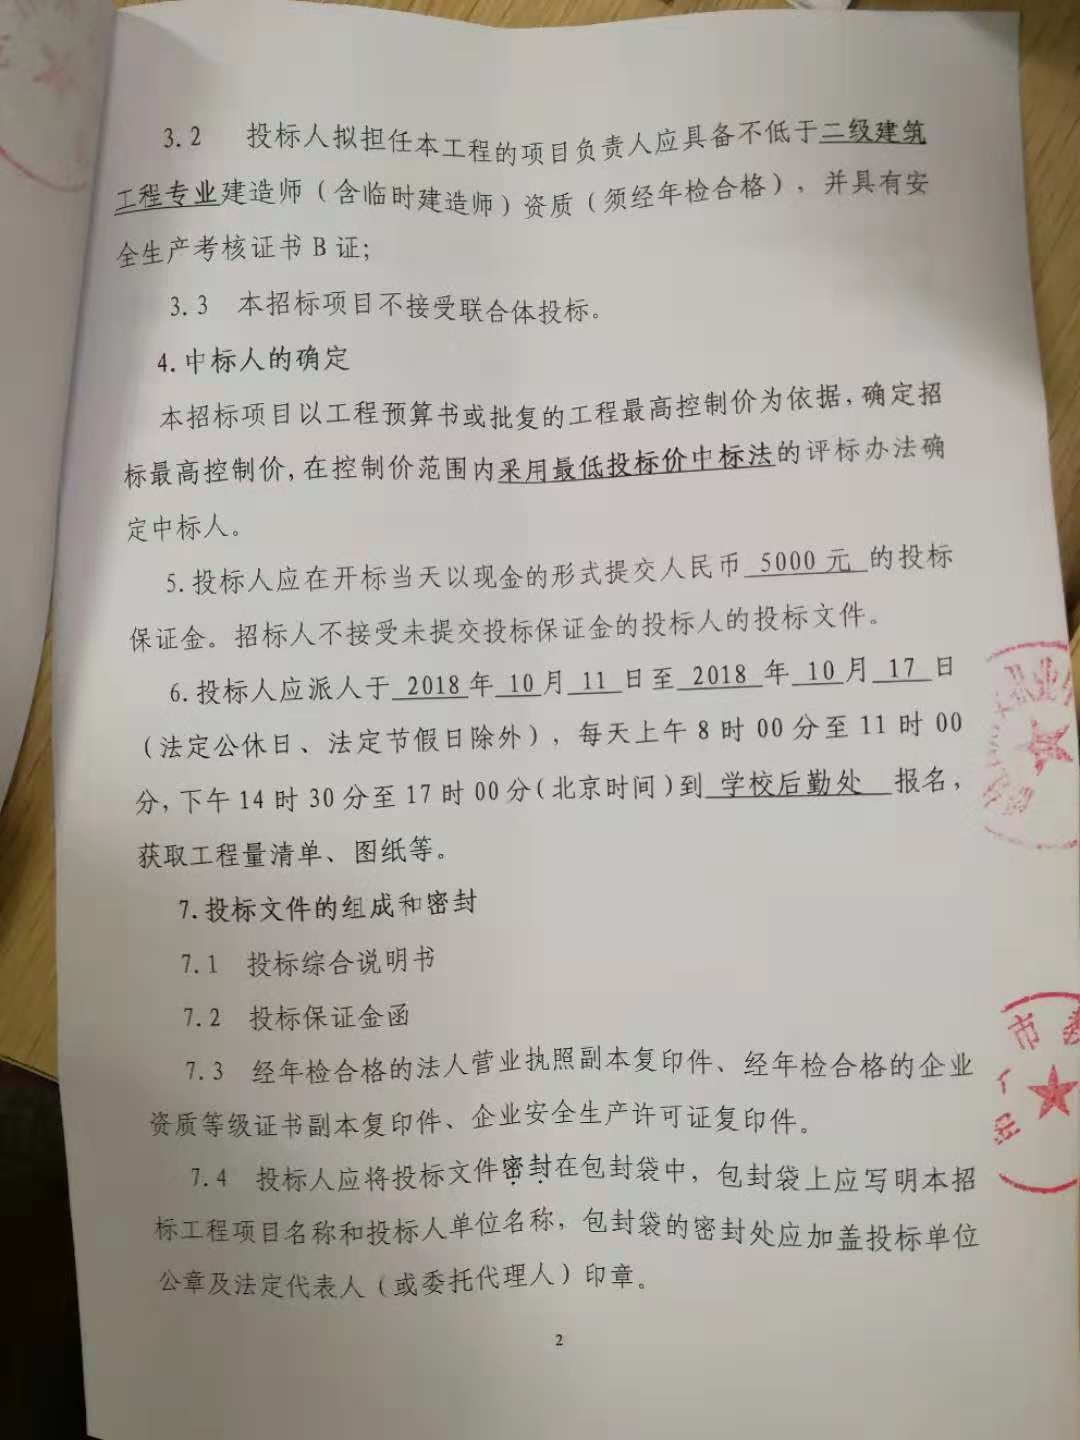 3.2 投标人拟担任本工程的项目负责人应具备不低于二级建筑
工程专业建造师（含临时建造师）资质（须经年检合格），并具有安
全生产考核证书 B 证;
3.3 本招标项目不接受联合体投标。
4.中标人的确定
本招标项目以工程预算书或批复的工程最高控制价为依据,确定招
标最高控制价,在控制价范围内采用最低投标价中标法的评标办法确
定中标人。
5.投标人应在开标当天以现金的形式提交人民币 5000 元 的投标
保证金。招标人不接受未提交投标保证金的投标人的投标文件。
6.投标人应派人于 2018 年 10 月 11 日至 2018 年 10 月 17 日
（法定公休日、法定节假日除外），每天上午 8 时 00 分至 11 时 00
分,下午 14 时 30 分至 17 时 00 分(北京时间)到 学校后勤处 报名，
获取工程量清单、图纸等。
7.投标文件的组成和密封
7.1 投标综合说明书
7.2 投标保证金函
7.3 经年检合格的法人营业执照副本复印件、经年检合格的企业
资质等级证书副本复印件、企业安全生产许可证复印件。
7.4 投标人应将投标文件密封在包封袋中，包封袋上应写明本招
标工程项目名称和投标人单位名称，包封袋的密封处应加盖投标单位
公章及法定代表人（或委托代理人）印章。
2
职业
市